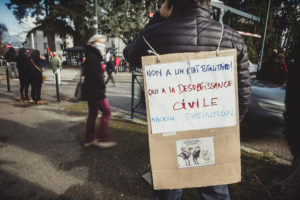 NON A UN ETAT TOTALITAIRE!
OUI A LA DESOBEISSANCE
CIVILE
MACRON DESTITUTION